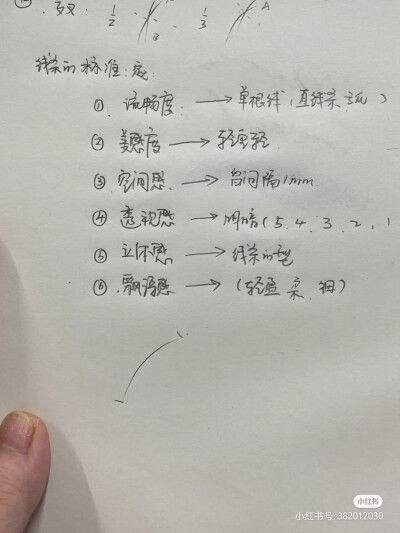 ⑩ 交叉: 1/2 B 1/3 A
线条的标准:
① 流畅度 → 单根线(直线条 弧)
② 美感度 → 轻重轻
③ 空间感 → 白间隔1mm
④ 透视感 → 明暗(5.4.3.2.1
⑤ 立体感 → 线条的型
⑥ 飘逸感 → (轻盈 柔 细)
小红书
小红书号: 382012030